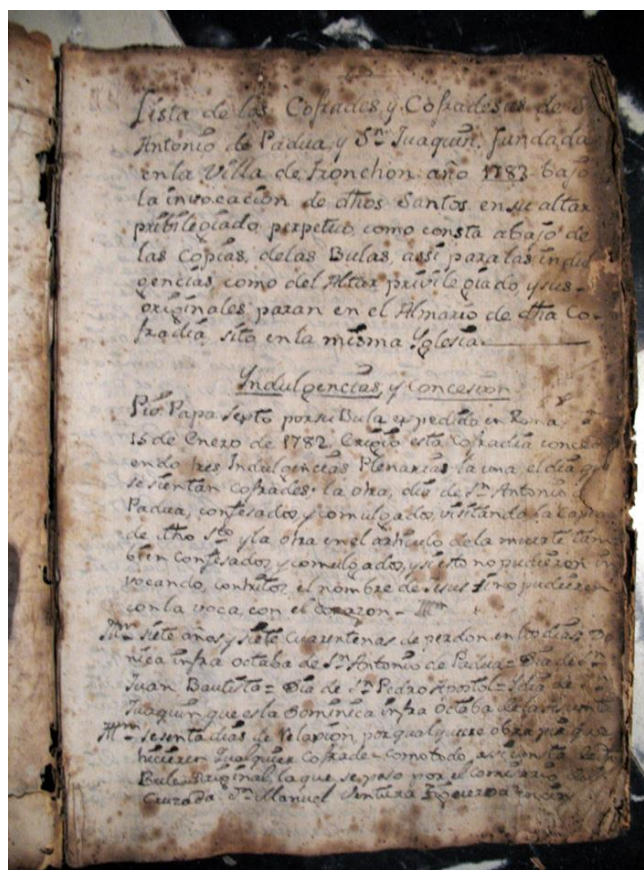 Lista de los Cofrades, y Cofradesas de S.
Antonio de Padua, y Sn. Juaquin, fundada
en la Villa de Tronchon año 1783 bajo
la invocacion de dhos Santos en su altar
pribilegiado, perpetuo, como consta abajo de
las Copias, de las Bulas, assi para las indul
gencias, como del Altar, privilegiado, y sus
originales paran en el Almario de dha Co-
fradia sito en la misma Yglesia
Yndulgencias, y Concesion
Pio Papa Septo por su Bula expedida en Roma
15 de Enero de 1782 Erigio esta Cofradia concedi
endo tres Indulgencias Plenarias la una, el dia que
se sientan cofrades. la otra, dia de Sn. Antonio
Padua, confesados, y comulgados, visitando la Capilla
de dho Sto. y la otra en el articulo de la muerte tam
bien confesados, y comulgados, y si esto no pudieren in
vocando, contritos, el nombre de Jesus sino pudieren
con la voca, con el corazon - Ittm
Ittm Siete años, y siete Cuarentenas de perdon en los dias Do
nica infra octaba de Sn. Antonio de Padua = Dia de Sn.
Juan Bautista = Dia de Sn. Pedro Apostol = Y dia de Sn.
Juaquin que es la Dominica infra Octaba de la
Ittm Sesenta dias de relaxion, por qualquiere obra pia que
hicieren qualquier Cofrade = como todo, assi consta de la
Bula Original, la que se paso por el Comisario de la
Cruzada Dn. Manuel Ventura Figueroa